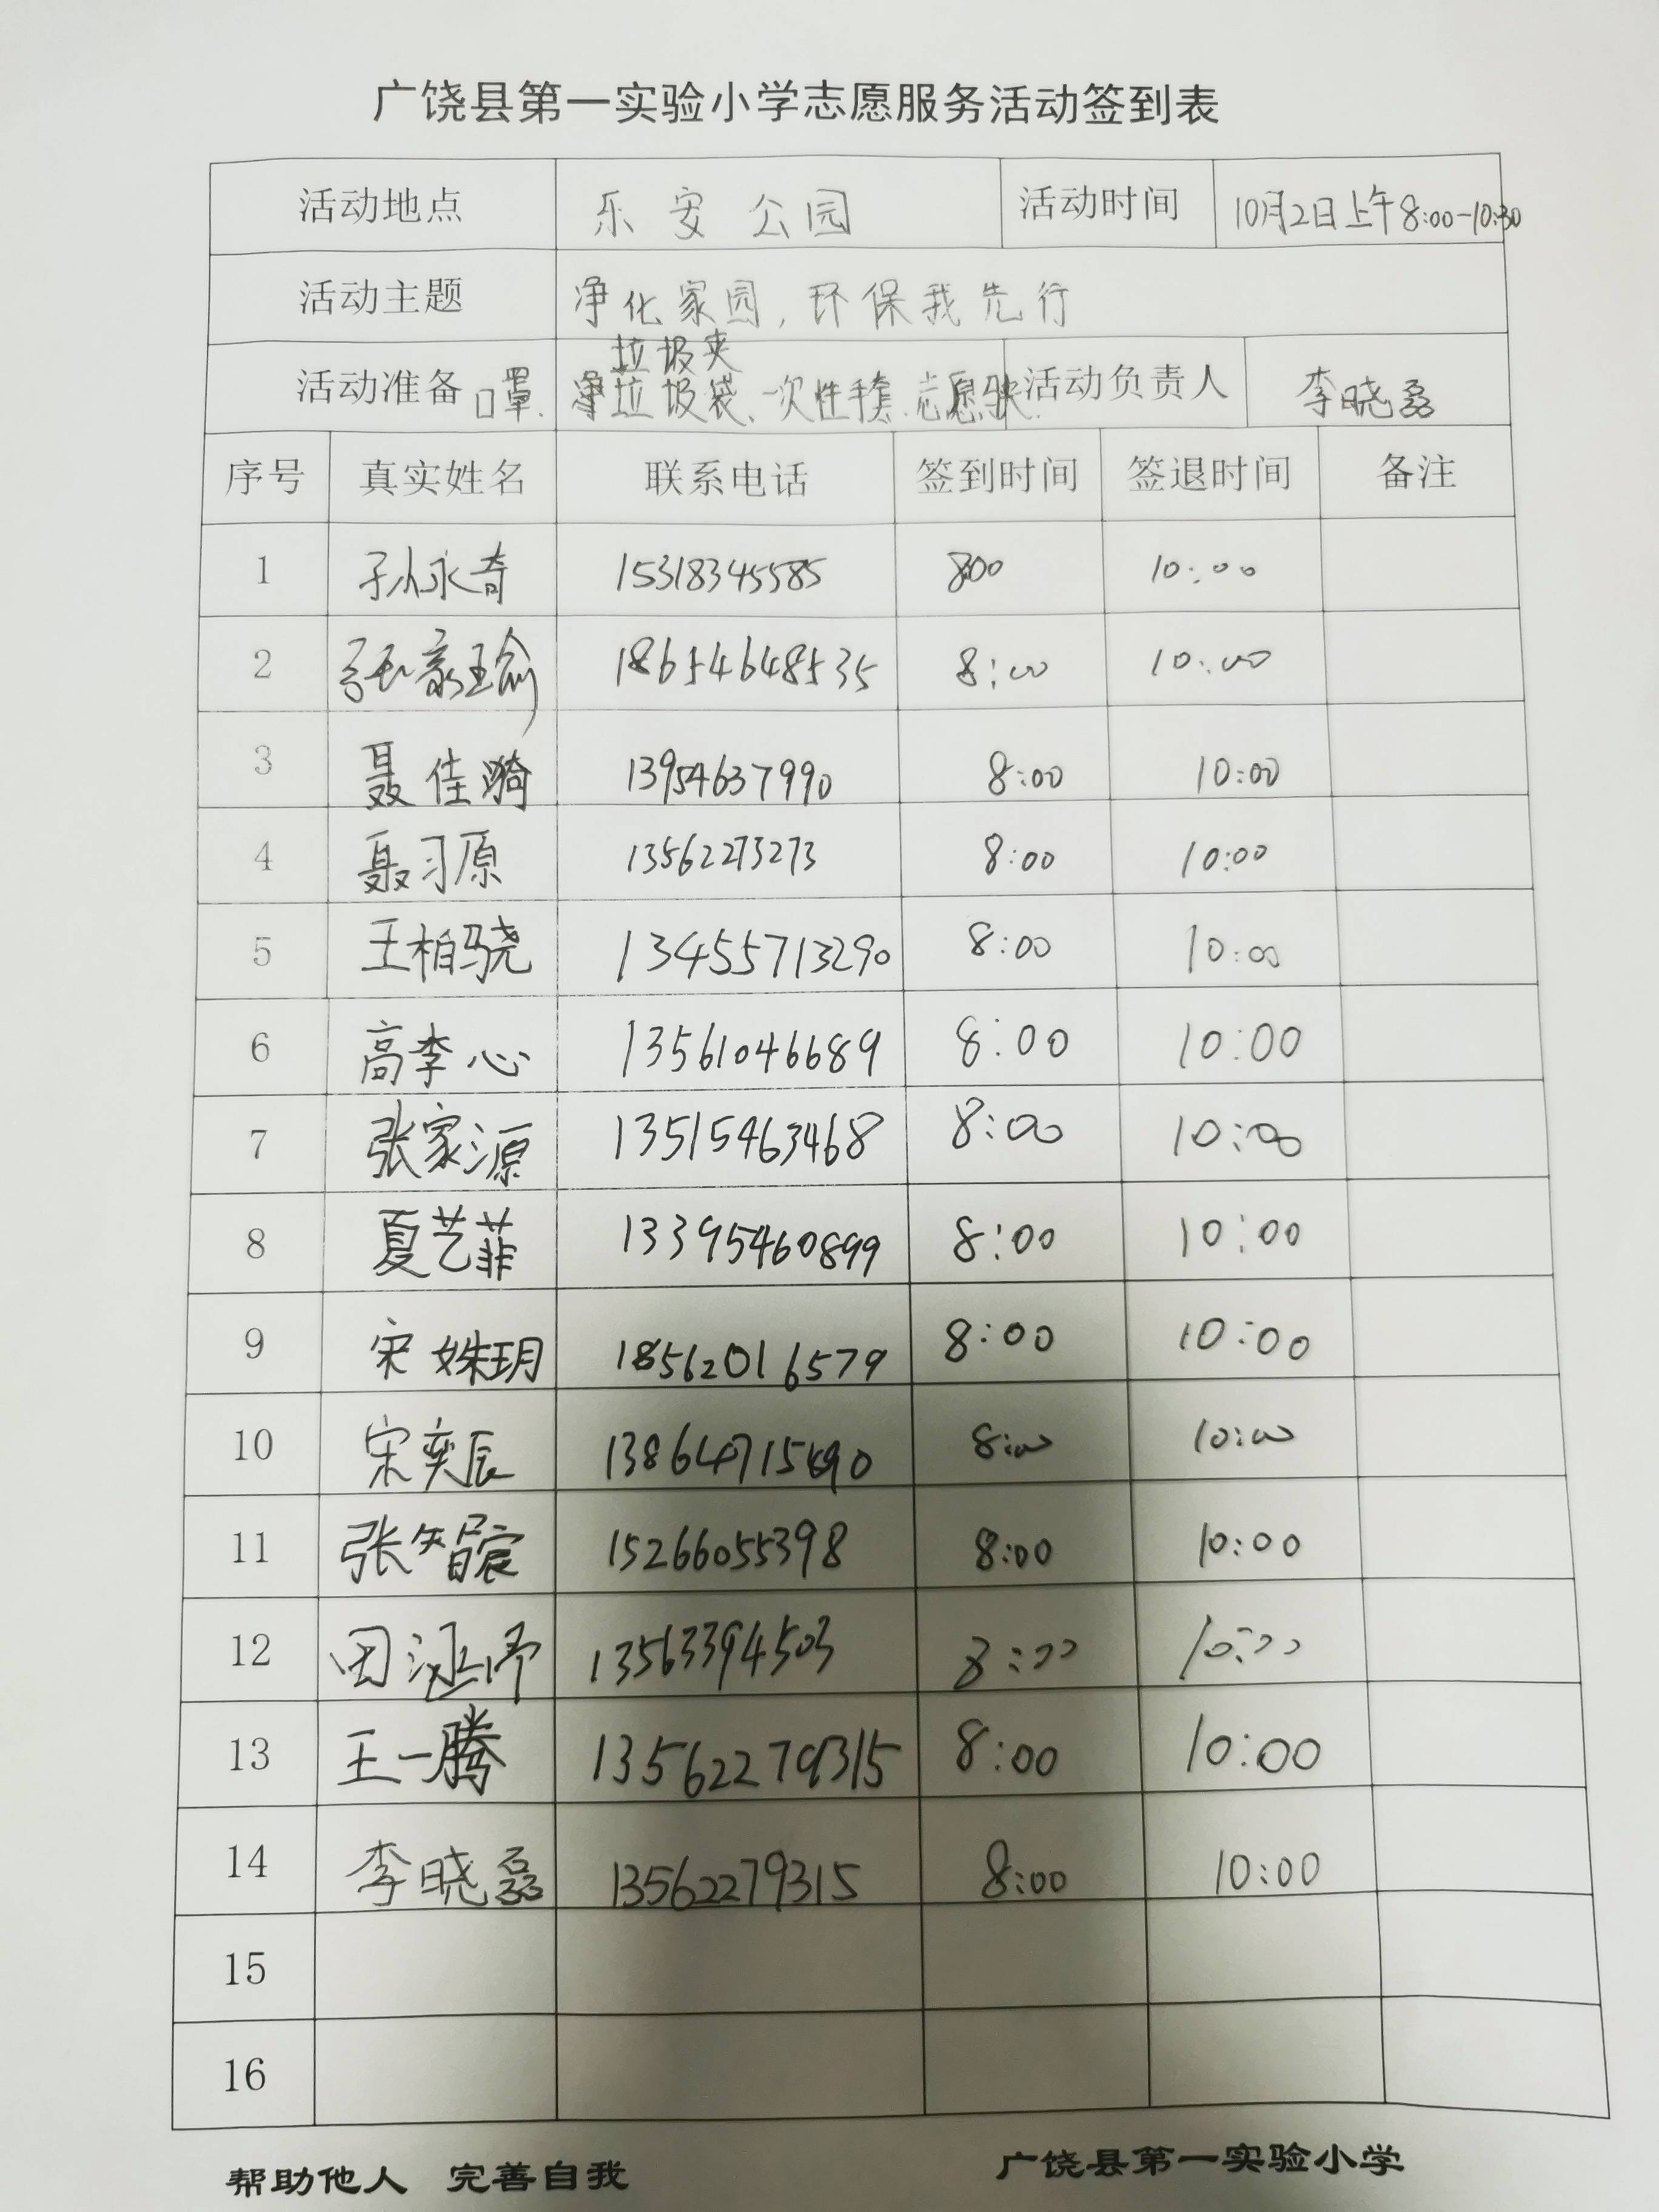 广饶县第一实验小学志愿服务活动签到表
活动地点 乐安公园 活动时间 10月2日上午8:00-10:30
活动主题 净化家园,环保我先行
垃圾夹
活动准备 口罩、垃圾袋、一次性手套、志愿 活动负责人 李晓磊
序号 真实姓名 联系电话 签到时间 签退时间 备注
1 孙永奇 15318345585 800 10:00
2 张家瑜 18654648535 8:00 10:00
3 聂佳骑 13954637990 8:00 10:00
4 聂习原 13562273273 8:00 10:00
5 王柏骁 13455713290 8:00 10:00
6 高李心 13561046689 8:00 10:00
7 张家源 13515463468 8:00 10:00
8 夏艺菲 13395460899 8:00 10:00
9 宋姝玥 18562016579 8:00 10:00
10 宋奕辰 8:00 10:00
11 张智宸 15266055398 8:00 10:00
12 田涵予 13563394503 8:00 10:00
13 王一腾 13562279315 8:00 10:00
14 李晓磊 13562279315 8:00 10:00
15
16
帮助他人 完善自我 广饶县第一实验小学